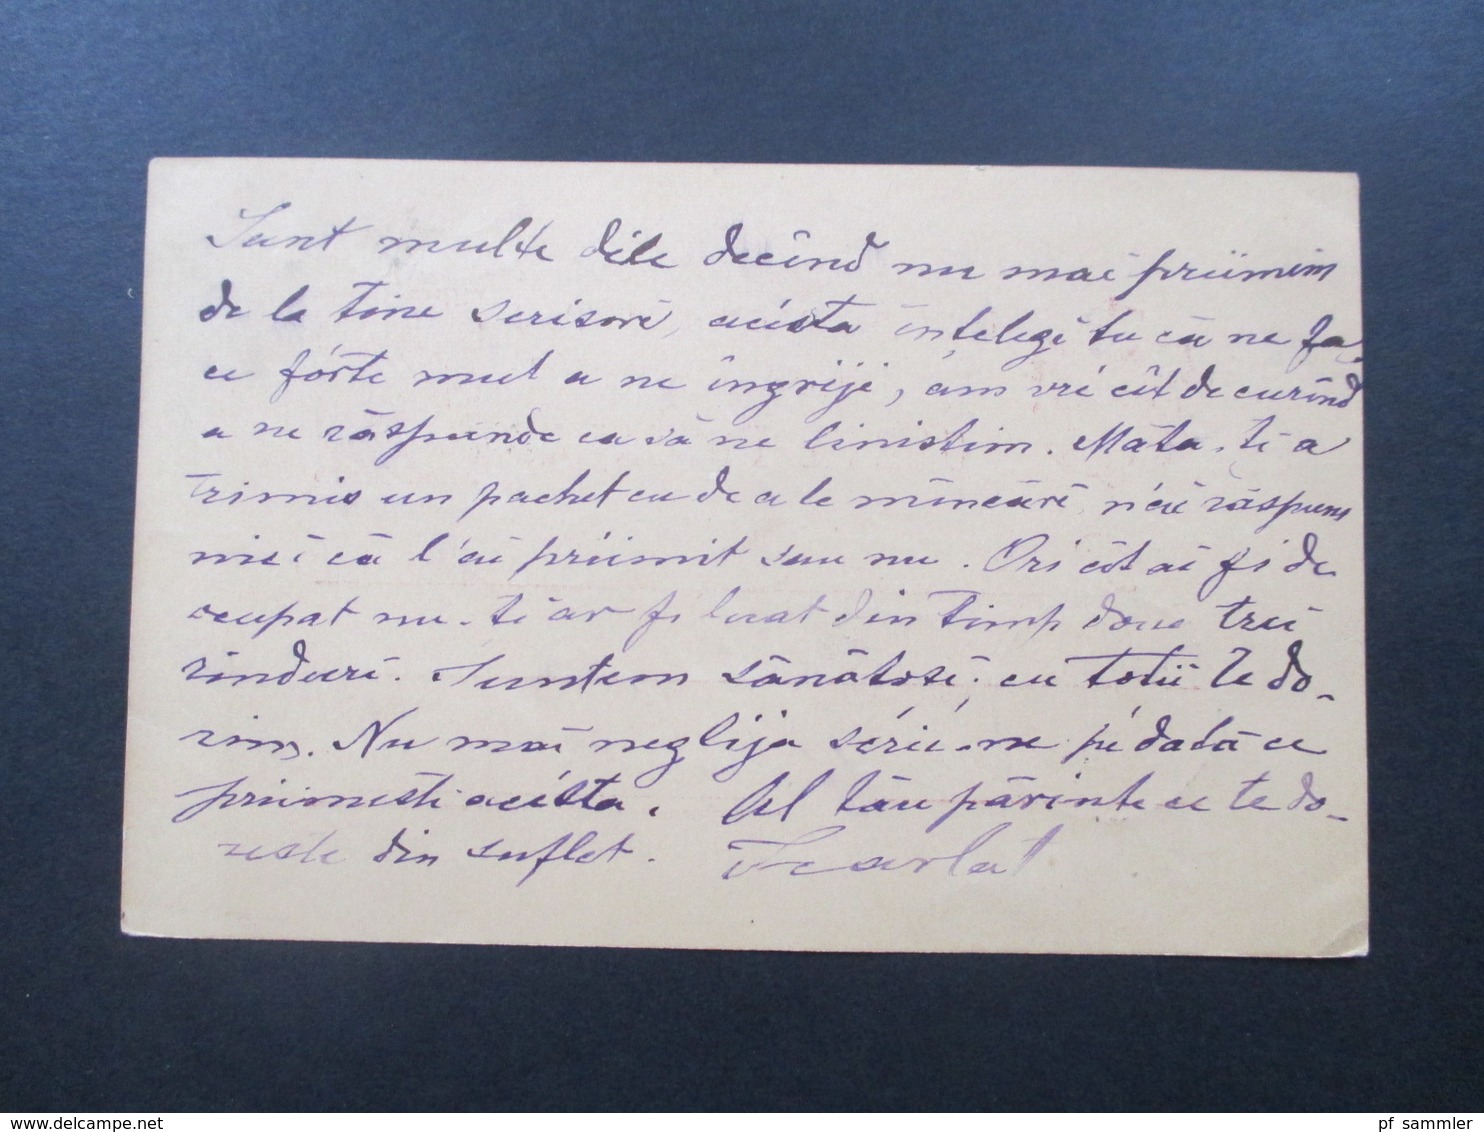 Sunt multe dile decînd nu mai priimim
de la tine scrisorĭ, acésta întelegĭ tu că ne fa-
ce fórte mult a ne îngriji, am vré cît de curînd
a ne răspunde ca să ne linistim. Măta ti a
trimis un pachet cu de a le mîncărĭ n'ai răspuns
nicĭ că l'ai priimit sau nu. Ori cît ai fi de
ocupat nu-ti ar fi luat din timp doue treĭ
rîndurĭ. Suntem sănătosĭ. cu totii te do-
rim. Nu mai neglija scrie-ne pe dată ce
primesti acésta. Al tău părinte ce te do-
reste din suflet. Scarlat
www.delcampe.net
pf_sammler